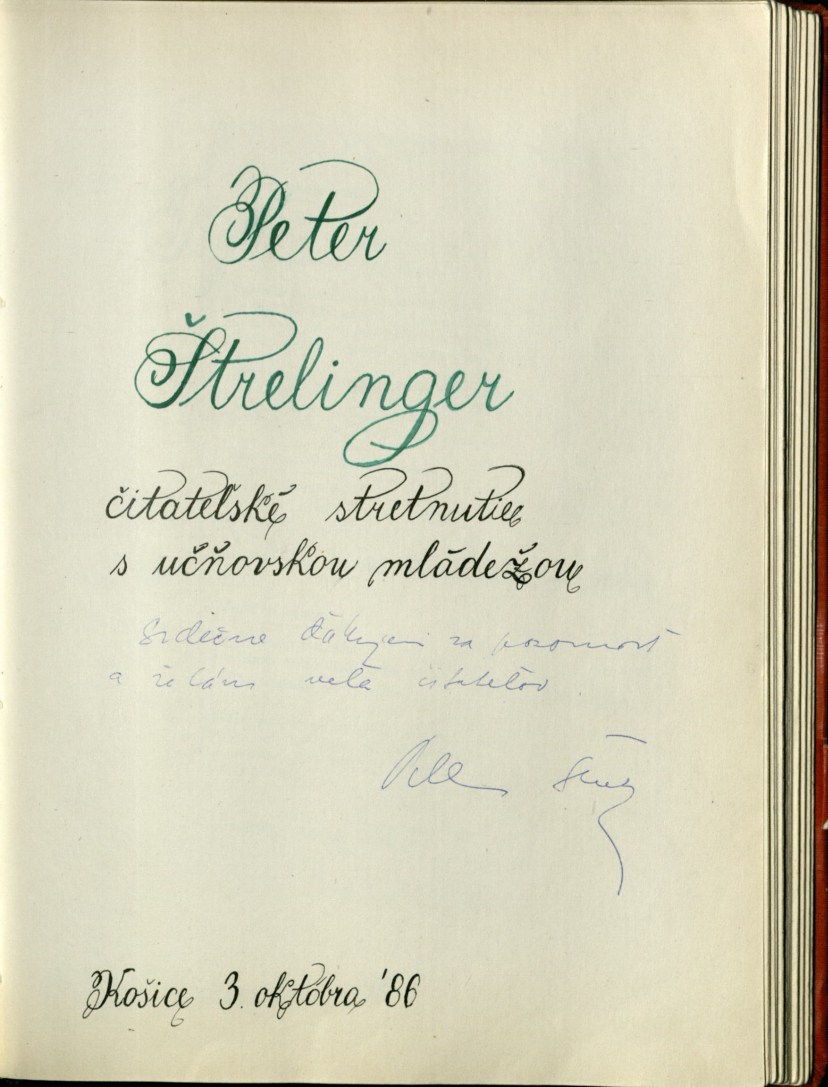 Peter
Štrelinger
čitateľské stretnutie
s učňovskou mládežou
Srdečne ďakujem za pozornosť
a želám veľa čitateľov.
Košice 3. októbra '86